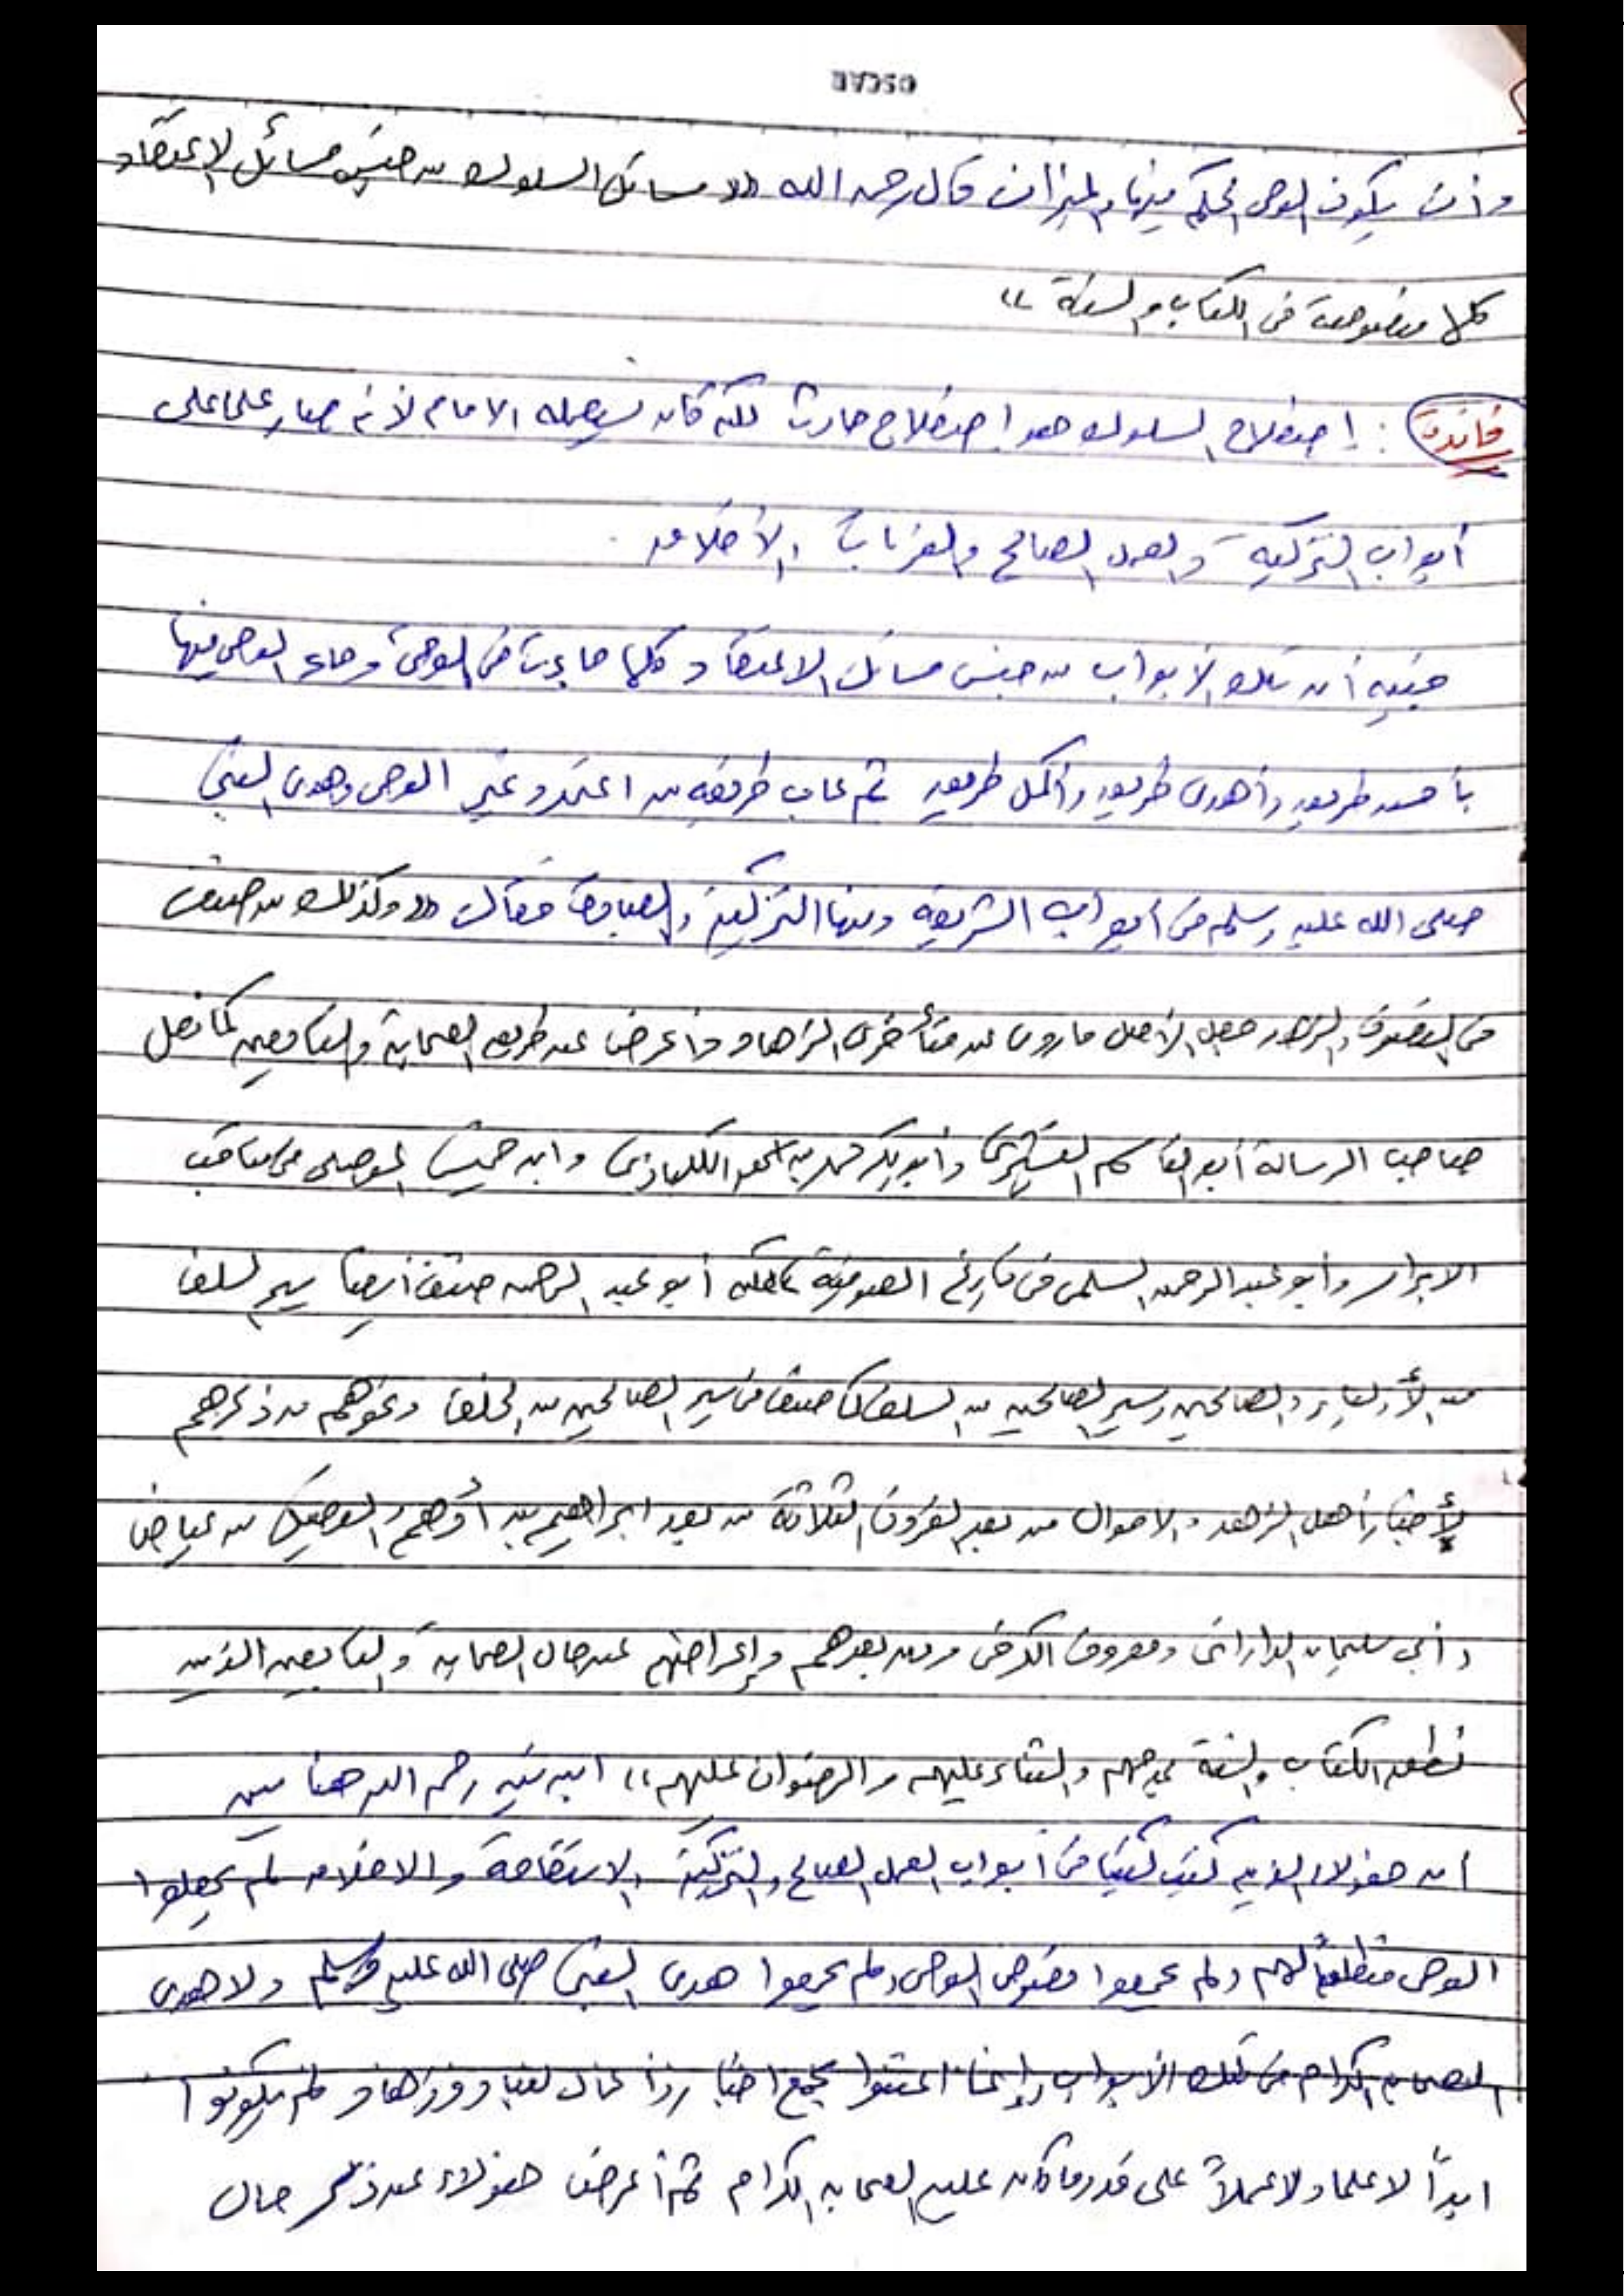 OSCAR
وأن يكون الوحى الحكم فيها والميزان قال رحمه الله (( مسائل السلوك من جنس مسائل الاعتقاد
كلها منصوصة فى الكتاب والسنة ))
فائدة : إصطلاح السلوك هو اصطلاح حادث لكنه كان يستعمله الامام لأنه صار علما على
أبواب التزكية والعمل الصالح والقربات والأخلاق .
فنبه أن تلك الأبواب من جنس مسائل الاعتقاد كلها جاءت فى الوحى وجاء الوحى فيها
بأحسن طريق وأهدى طريق وأكمل طريق ثم عاب طريقة من اعتمد غير الوحى وهدى النبى
صلى الله عليه وسلم فى أبواب الشريعة ومنها التزكية والعبادة فقال (( وكذلك من صنف
فى التصوف والزهد جعل الأصل ماروى عن متأخرى الزهاد وأعرض عن طريق الصحابة والتابعين كما فعل
صاحب الرسالة أبو القاسم القشيرى وأبو بكر محمد بن اسحق الكلاباذى وابن خميس الموصلى فى مناقب
الابرار وأبو عبد الرحمن السلمى فى تاريخ الصوفية لكن أبو عبد الرحمن صنف أيضا سير السلف
من الأولياء والصالحين وسير الصالحين من السلف كما صنف فى سير الصالحين من الخلف ونحوهم من ذكرهم
لأخبار أهل الزهد والاحوال من بعد القرون الثلاثة من بعد ابراهيم بن أدهم والفضيل بن عياض
وأبى سليمان الدارانى ومعروف الكرخى ومن بعدهم وإعراضهم عن حال الصحابة والتابعين الذين
نطق الكتاب والسنة بمدحهم والثناء عليهم والرضوان عليهم )) ابن تيمية رحمه الله هنا يبين
أن هؤلاء الذين كتبت كتبا فى أبواب العمل الصالح والتزكية والاستقامة والاخلاق لم يجعلوا
الوحى منطلقا لهم ولم يجمعوا نصوص الوحى ولم يجمعوا هدى النبى صلى الله عليه وسلم ولا هدى
الصحابة الكرام فى تلك الأبواب وإنما اعتنوا بجمع اخبار وأعمال لعباد وزهاد لم يكونوا
ابداً لا علما ولا عملاً على قدر ما كان عليه الصحابة الكرام ثم أعرض هؤلاء عن ذكر حال